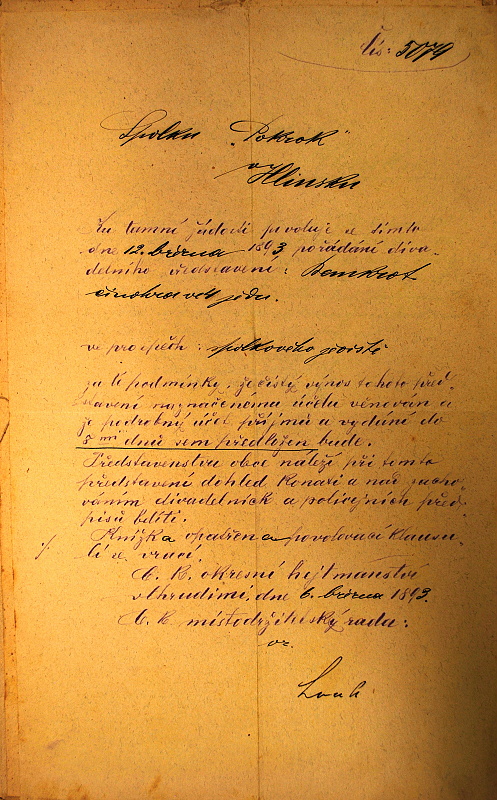 Čís: 5079
Spolku „Pokrok“
v
Hlinsku
Ku tamní žádosti povoluje se tímto
dne 12. března 1893 pořádání diva-
delního představení:
činohra ve 4 jedn.
ve prospěch: spolkového
za té podmínky, že čistý výnos tohoto před-
stavení naznačenému účelu věnován a
že podrobný účet příjmů a vydání do
8mi dnů sem předložen bude.
Představenstvu obce náleží při tomto
představení dohled konati a nad zacho-
váním divadelních a policejních před-
pisů bdíti.
Knížka opatřena povolovací klausu-
lí se vrací.
C. k. okresní hejtmanství
v Chrudimi, dne 6. března 1893.
C. k. místodržitelský rada: